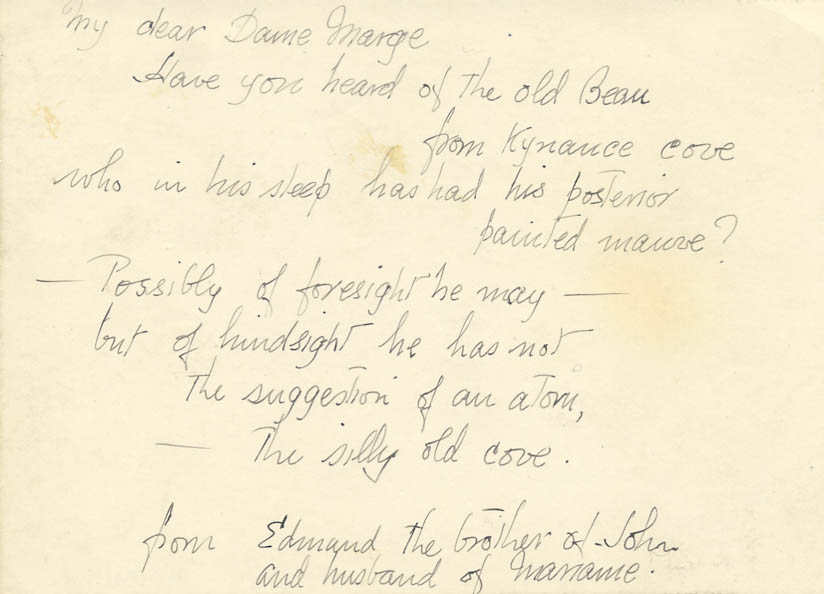 My dear Dame Marge
Have you heard of the old Beau
from Kynance cove
who in his sleep has had his posterior
painted mauve?
— Possibly of foresight he may —
but of hindsight he has not
the suggestion of an atom,
— The silly old cove.
from Edmund the brother of John
and husband of